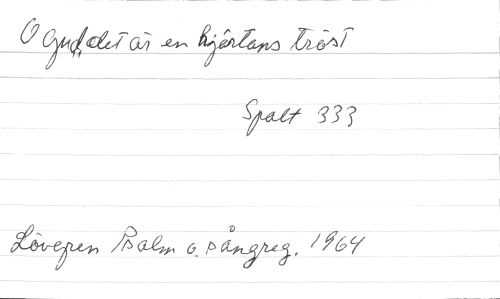 O Gud, det är en hjärtans tröst
Spalt 333
Lövgren Psalm o. sångreg. 1964